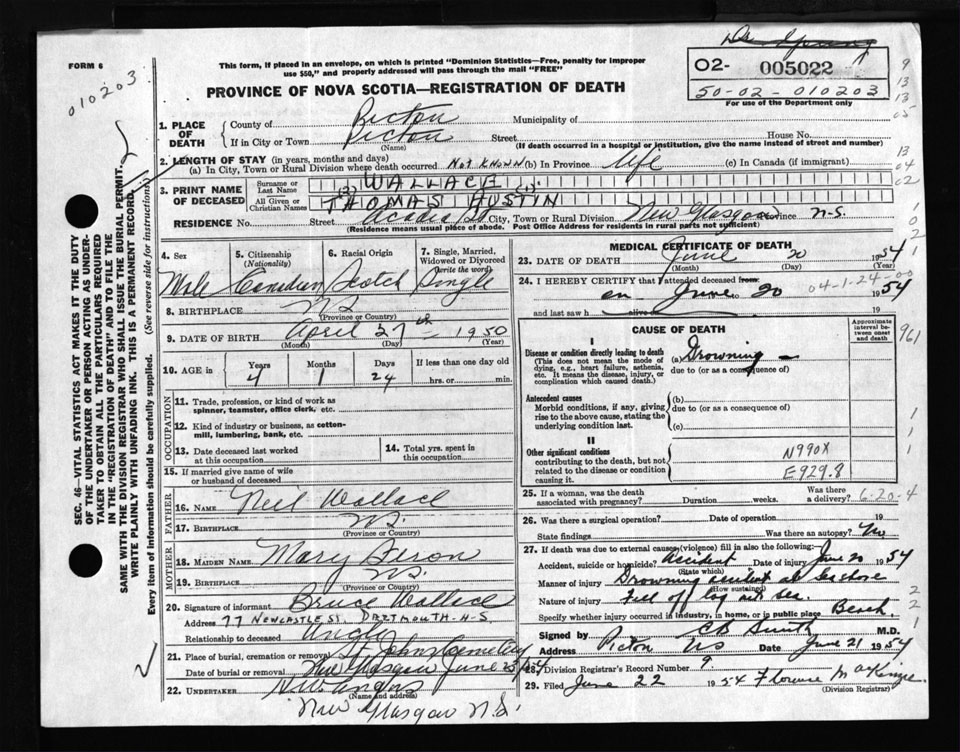 FORM 6
010203
This form, if placed in an envelope, on which is printed "Dominion Statistics—Free, penalty for improper
use $50," and properly addressed will pass through the mail "FREE"
PROVINCE OF NOVA SCOTIA—REGISTRATION OF DEATH
02- 005022
50-02-010203
For use of the Department only
1. PLACE OF DEATH
County of Pictou Municipality of
If in City or Town Pictou Street House No.
(Name) (If death occurred in a hospital or institution, give the name instead of street and number)
2. LENGTH OF STAY (in years, months and days)
(a) In City, Town or Rural Division where death occurred NOT KNOWN (b) In Province Life (c) In Canada (if immigrant)
3. PRINT NAME OF DECEASED
Surname or Last Name WALLACE
(2) (1)
All Given or Christian Names THOMAS AUSTIN
RESIDENCE No. Street Acadia St City, Town or Rural Division New Glasgow Province N-S.
(Residence means usual place of abode. Post Office Address for residents in rural parts not sufficient)
4. Sex Male
5. Citizenship (Nationality) Canadian
6. Racial Origin Scotch
7. Single, Married, Widowed or Divorced (write the word) Single
8. BIRTHPLACE NS
(Province or Country)
9. DATE OF BIRTH April 27th 1950
(Month) (Day) (Year)
10. AGE in Years Months Days If less than one day old
4 1 24 hrs. or min.
OCCUPATION
11. Trade, profession, or kind of work as spinner, teamster, office clerk, etc.
12. Kind of industry or business, as cotton-mill, lumbering, bank, etc.
13. Date deceased last worked at this occupation
14. Total yrs. spent in this occupation
15. If married give name of wife or husband of deceased
FATHER
16. NAME Neil Wallace
17. BIRTHPLACE NS.
(Province or Country)
MOTHER
18. MAIDEN NAME Mary
19. BIRTHPLACE NS.
(Province or Country)
20. Signature of informant Bruce Wallace
Address 77 NEWCASTLE ST. DARTMOUTH-N-S
Relationship to deceased Uncle
21. Place of burial, cremation or removal St Johns Cemetery
Date of burial or removal New Glasgow June 23/54
22. UNDERTAKER
(Name and address)
New Glasgow N.S.
MEDICAL CERTIFICATE OF DEATH
23. DATE OF DEATH June 20 1954
(Month) (Day) (Year)
24. I HEREBY CERTIFY that I attended deceased from
on June to 20 1954
04-1-24-00
and last saw h alive 19
CAUSE OF DEATH
Approximate interval between onset and death
I
Disease or condition directly leading to death
(This does not mean the mode of dying, e.g., heart failure, asthenia, etc. It means the disease, injury, or complication which caused death.)
(a) Drowning
due to (or as a consequence of)
Antecedent causes
Morbid conditions, if any, giving rise to the above cause, stating the underlying condition last.
(b)
due to (or as a consequence of)
(c)
II
Other significant conditions
contributing to the death, but not related to the disease or condition causing it.
N990X
E929.8
961
25. If a woman, was the death associated with pregnancy? Duration weeks. Was there a delivery? 6-20-4
26. Was there a surgical operation? Date of operation
State findings Was there an autopsy? No
27. If death was due to external causes (violence) fill in also the following:
Accident, suicide or homicide? Accident Date of injury June 20 1954
(State which)
Manner of injury Drowning accident at seashore
(How sustained)
Nature of injury Fell off log into sea.
Specify whether injury occurred in industry, in home, or in public place Beach.
Signed by M.D.
Address Pictou NS Date June 21 1954
28. Division Registrar's Record Number 9
29. Filed June 22 1954 Florence MacKenzie.
(Division Registrar)
SEC. 46—VITAL STATISTICS ACT MAKES IT THE DUTY
OF THE UNDERTAKER OR PERSON ACTING AS UNDER-
TAKER TO OBTAIN ALL THE PARTICULARS REQUIRED
IN THE "REGISTRATION OF DEATH" AND TO FILE THE
SAME WITH THE DIVISION REGISTRAR WHO SHALL ISSUE THE BURIAL PERMIT.
WRITE PLAINLY WITH UNFADING INK. THIS IS A PERMANENT RECORD.
Every item of information should be carefully supplied. (See reverse side for instructions)
9
13
13
05
13
04
02
1
0
2
1
1
1
1
2
2
1